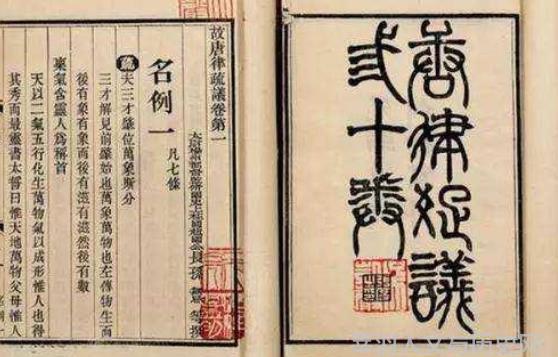 唐律疏議
弎十卷
故唐律疏議卷第一
長孫無忌等撰
名例一 凡七條
疏 夫三才肇位萬象斯分
三才解見前肇始也萬象萬物也左傳物生而
後有象有象而後有滋有滋然後有數
稟氣含靈人爲稱首
天以二氣五行化生萬物氣以成形惟人也得
其秀而最靈書太誓曰惟天地萬物父母惟人